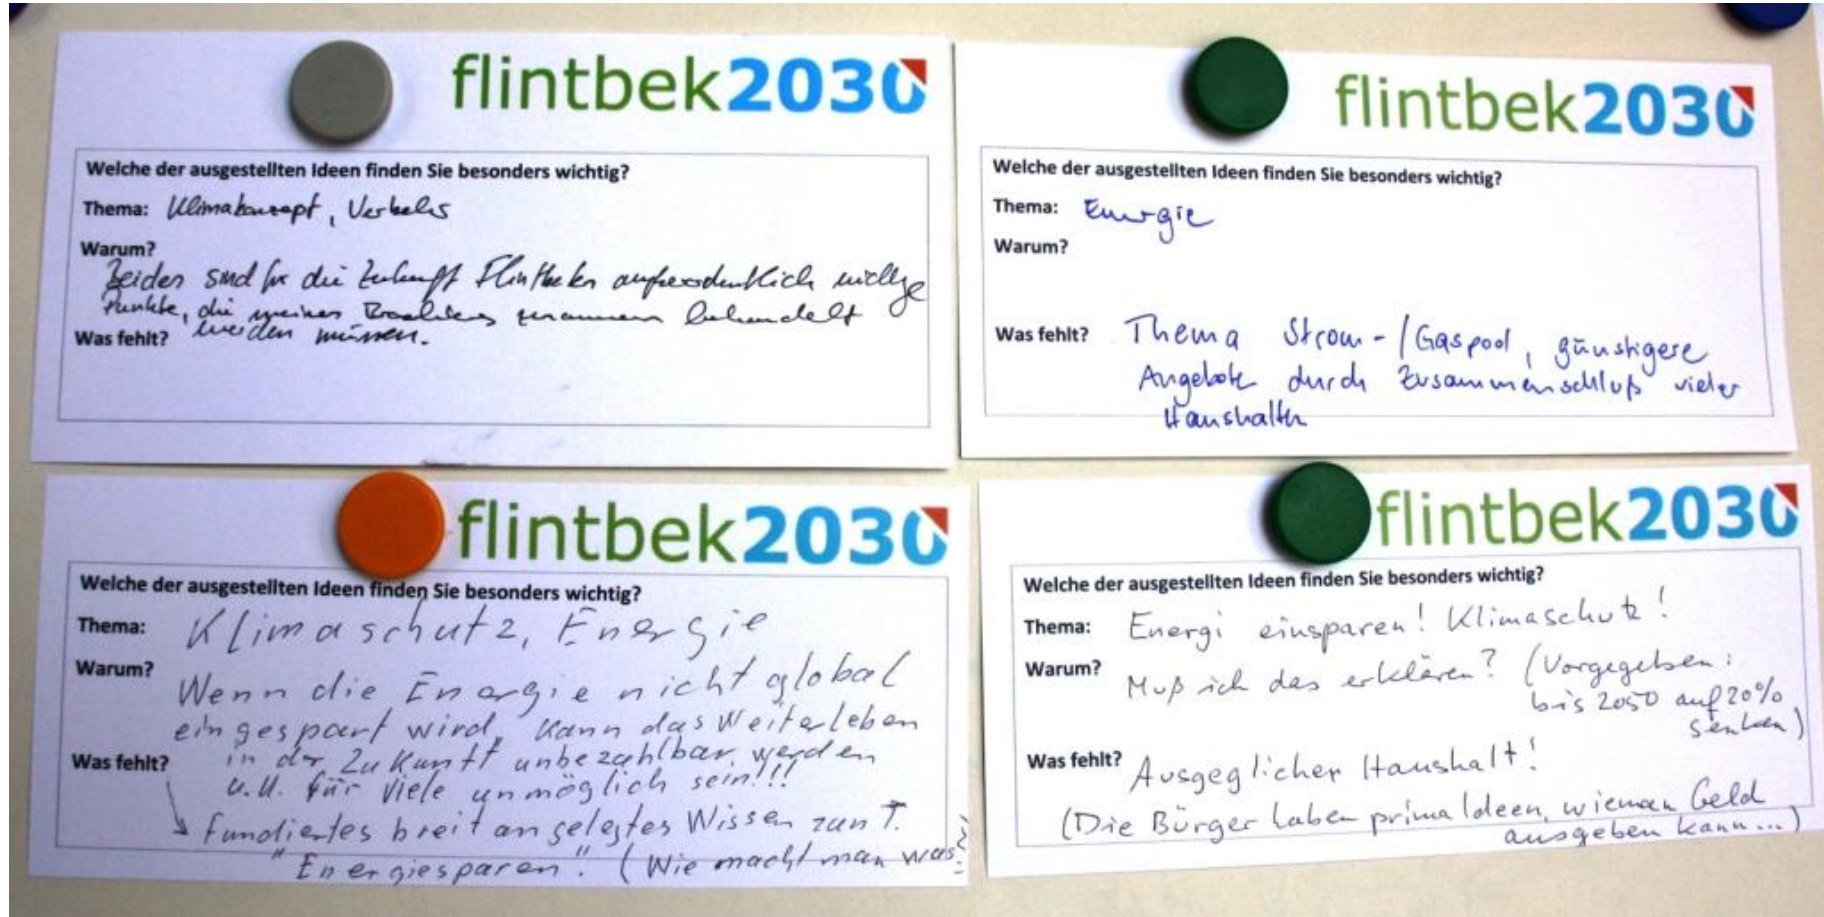 flintbek2030
Welche der ausgestellten Ideen finden Sie besonders wichtig?
Thema: Klimakonzept, Verkehrs
Warum?
Beides sind für die Zukunft Flintbeks außerordentlich wichtige
Punkte, die meines Erachtens zusammen behandelt
werden müssen.
Was fehlt?
flintbek2030
Welche der ausgestellten Ideen finden Sie besonders wichtig?
Thema: Energie
Warum?
Was fehlt? Thema Strom-/Gaspool, günstigere
Angebote durch Zusammenschluß vieler
Haushalte
flintbek2030
Welche der ausgestellten Ideen finden Sie besonders wichtig?
Thema: Klimaschutz, Energie
Warum?
Wenn die Energie nicht global
eingespart wird, kann das Weiterleben
in der Zukunft unbezahlbar werden
u.U. für viele unmöglich sein!!!
Was fehlt?
fundiertes breit angelegtes Wissen zum T.
"Energiesparen". (Wie macht man was?
flintbek2030
Welche der ausgestellten Ideen finden Sie besonders wichtig?
Thema: Energi einsparen! Klimaschutz!
Warum? Muß ich das erklären? (Vorgegeben:
bis 2050 auf 20%
senken)
Was fehlt? Ausgeglicher Haushalt!
(Die Bürger haben prima Ideen, wie man Geld
ausgeben kann...)